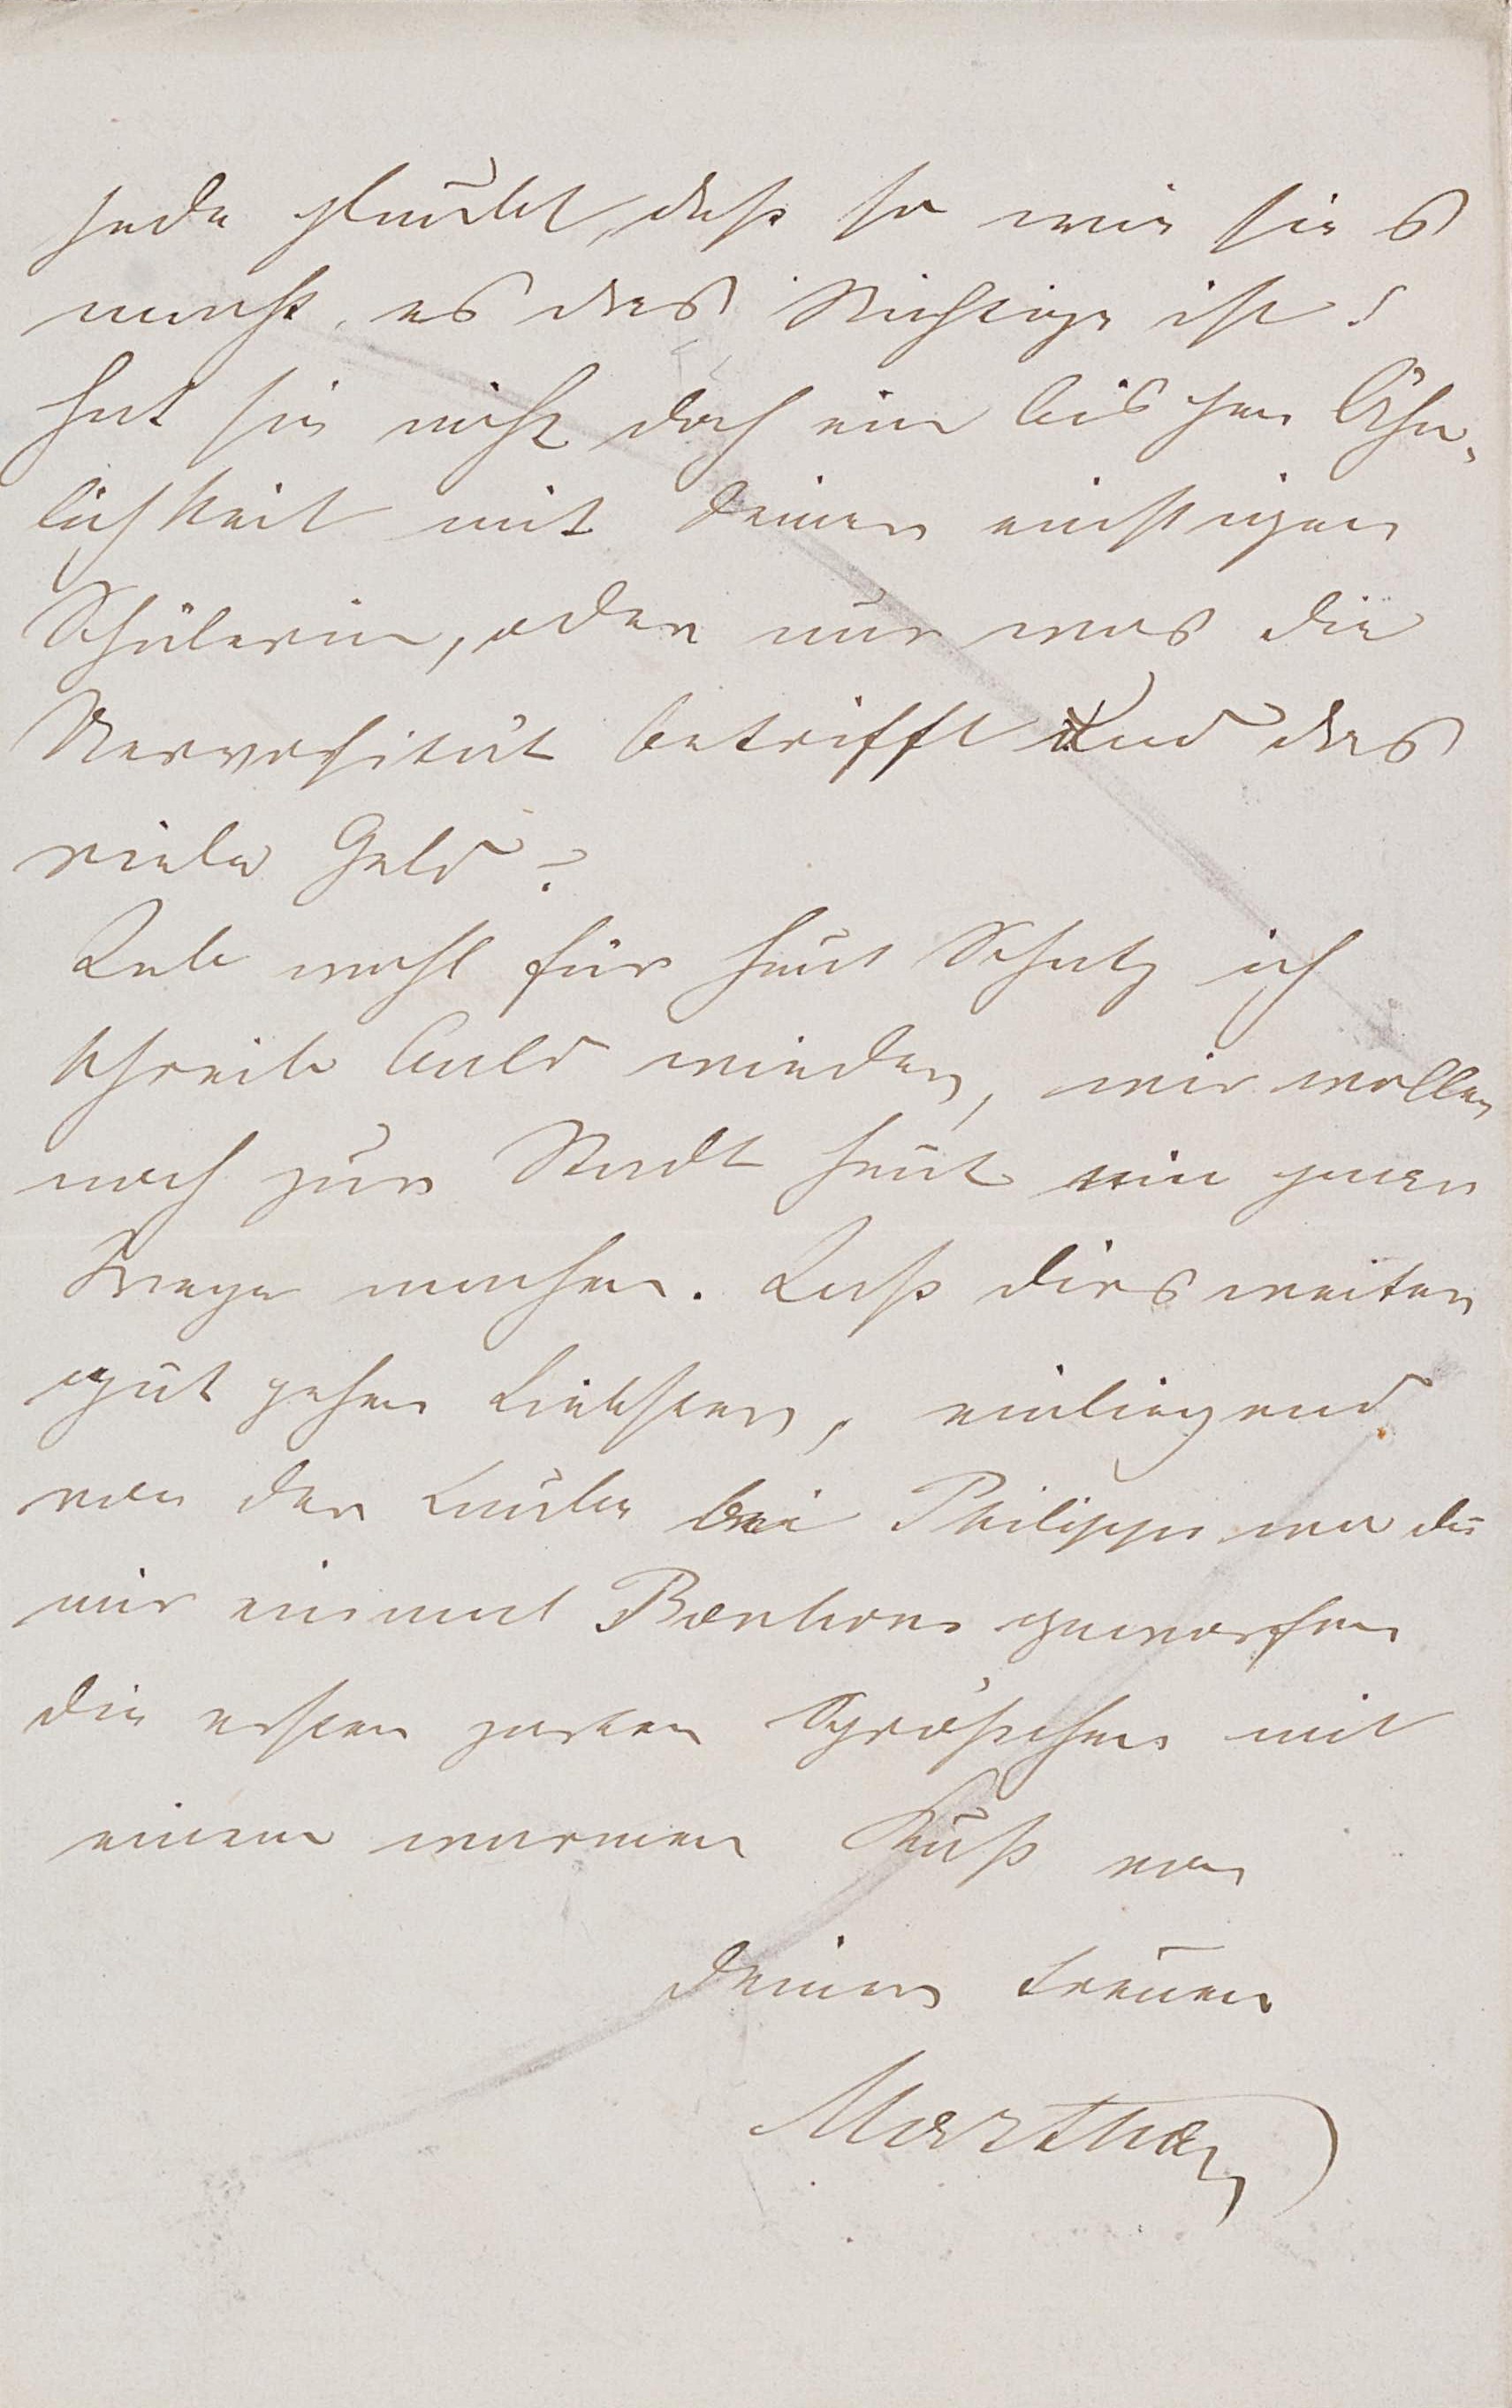 jede glaubt, daß so wie sie's
macht, es das Richtige ist!
Hat sie nicht doch ein bischen Ähn-
lichkeit mit Deiner einstigen
Schülerin, oder nur was die
Nervosität betrifft und das
viele Geld?
Leb wohl für heut Schatz ich
schreibe bald wieder, wir wollen
noch zur Stadt heut ein paar
Wege machen. Laß dirs weiter
gut gehen Liebster, einliegend
von der Laube bei Philipps wo du
mir einmal Bonbons geworfen
die ersten zarten Sprößchen mit
einem warmen Kuß von
Deiner treuen
Martha